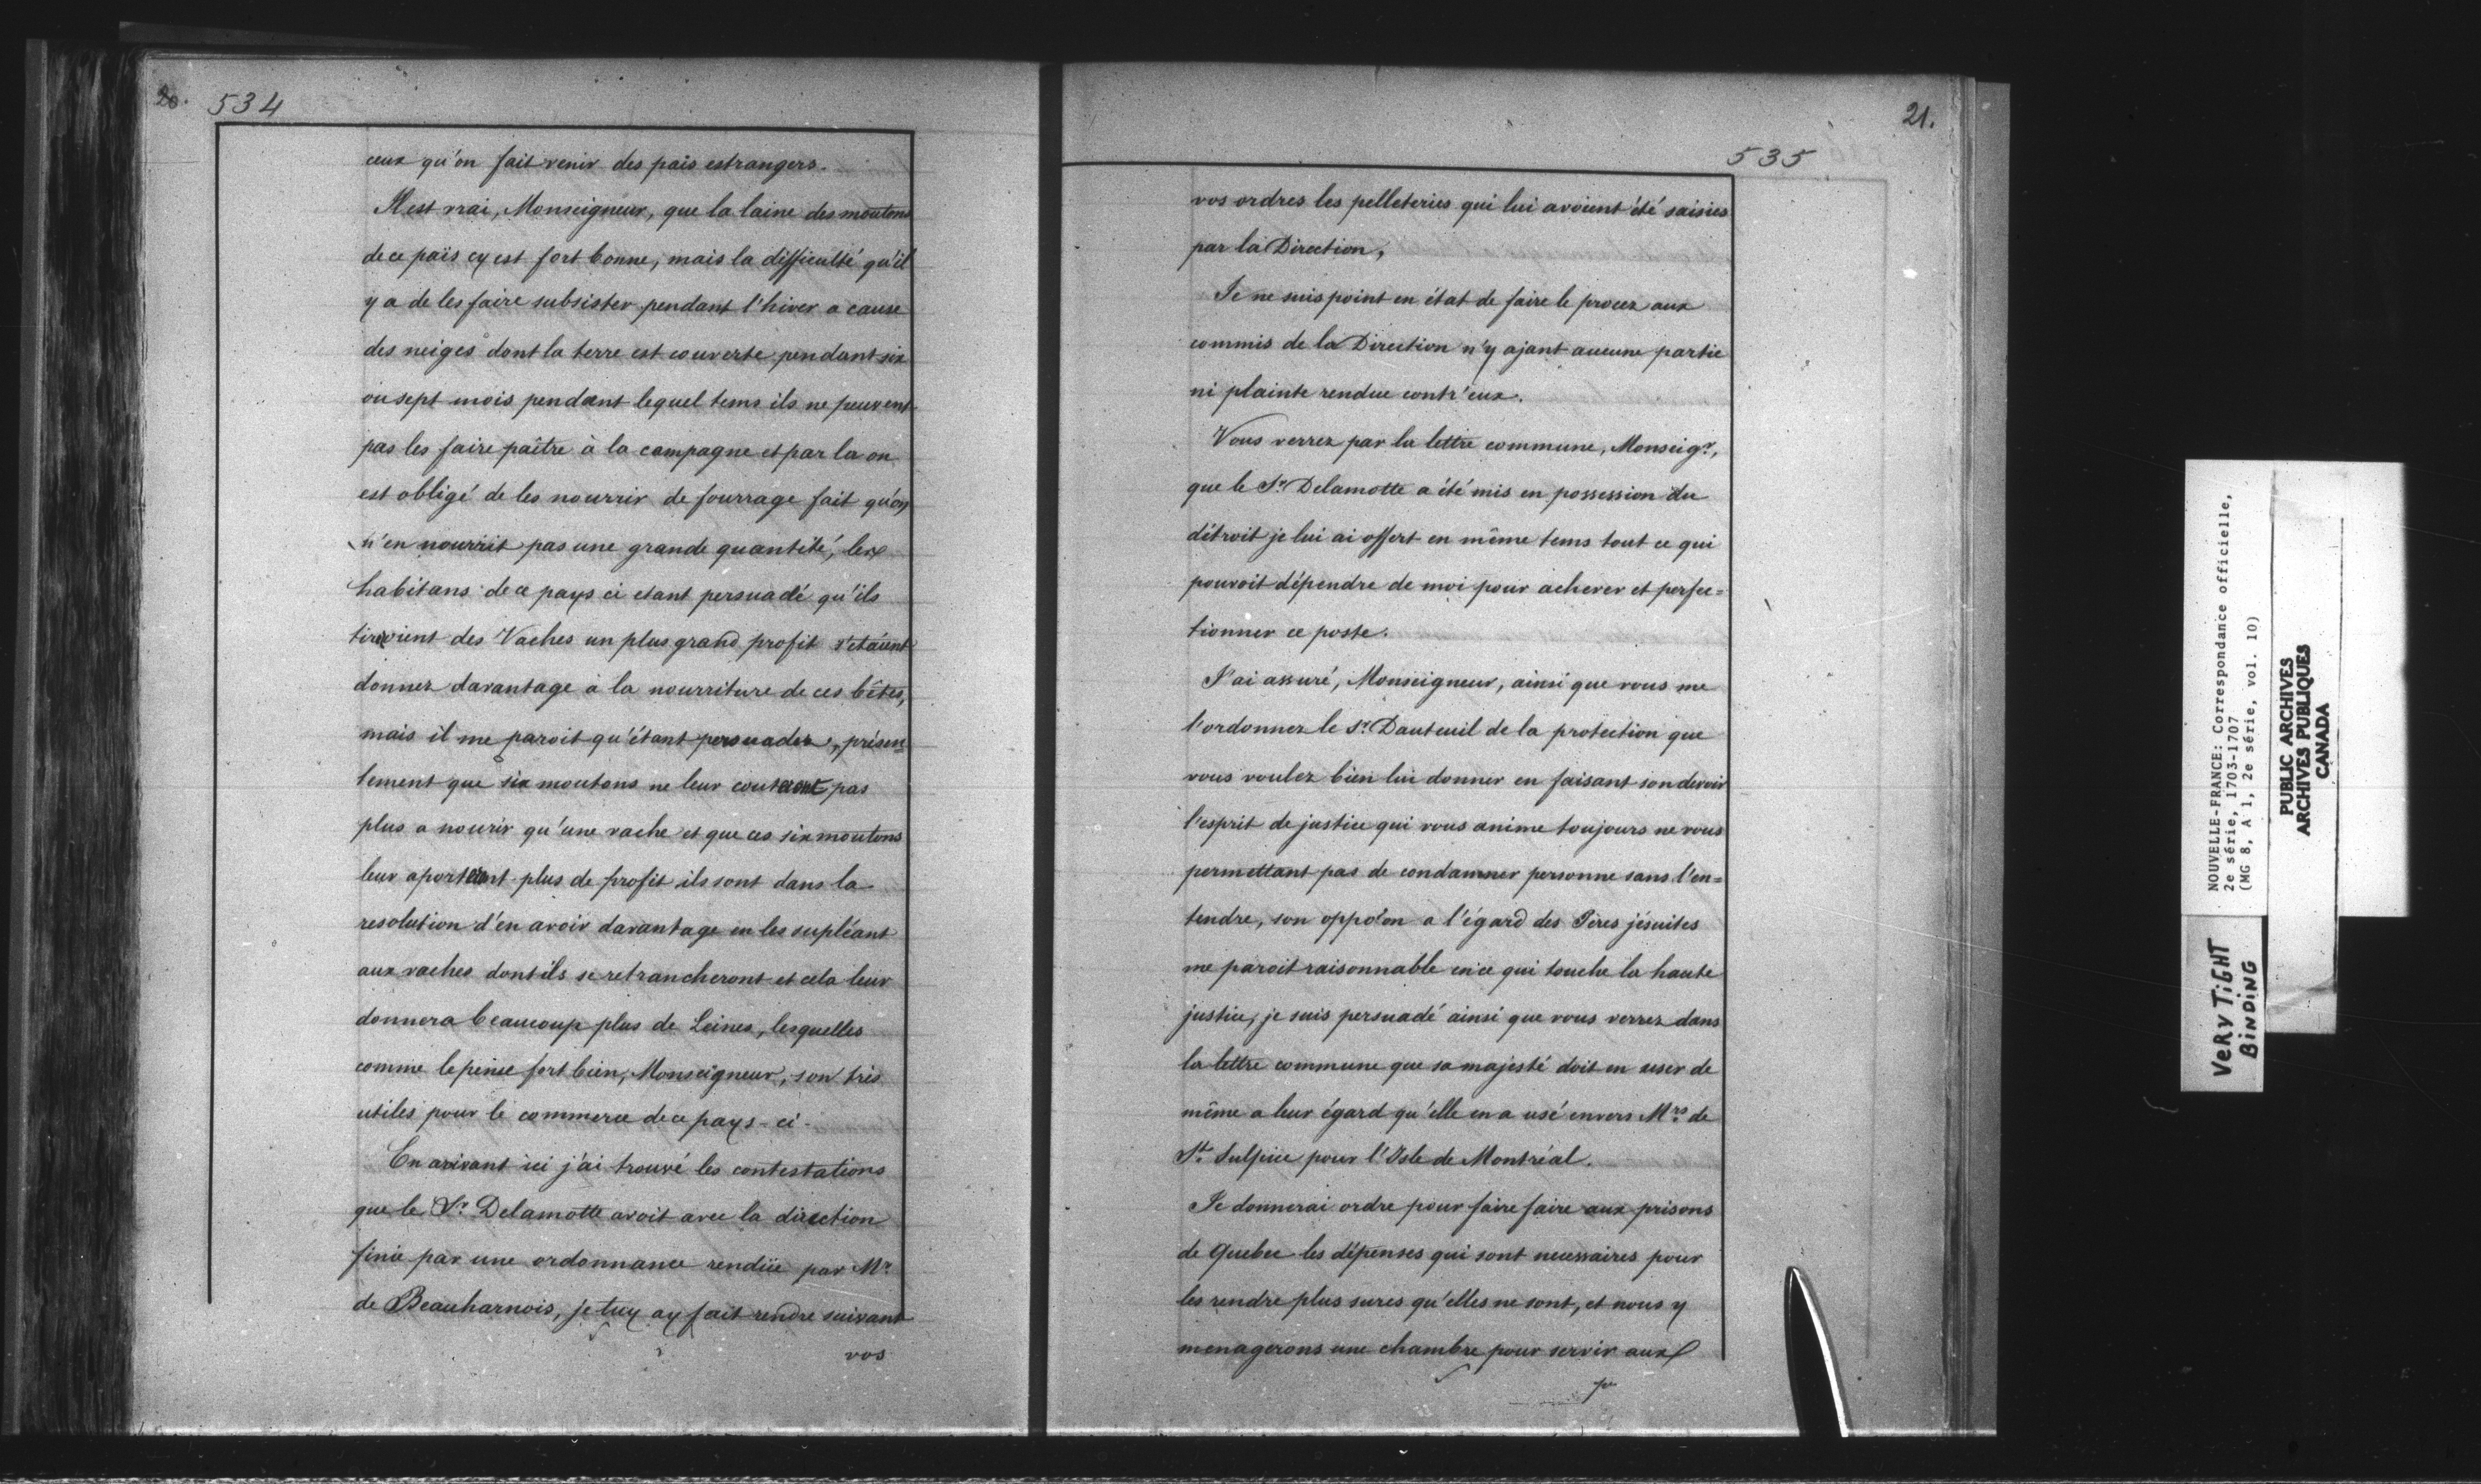 20. 534
ceux qu'on fait venir des païs estrangers.
Il est vrai, Monseigneur, que la laine des moutons
de ce païs cy est fort bonne, mais la difficulté qu'il
y a de les faire subsister pendant l'hiver a cause
des neiges dont la terre est couverte pendant six
ou sept mois pendant lequel tems ils ne peuvent
pas les faire paître à la campagne et par la on
est obligé de les nourrir de fourrage fait qu'on
n'en nourrit pas une grande quantité, les
habitans de ce pays ci etant persuadé qu'ils
tiroient des Vaches un plus grand profit s'etaient
donnez davantage à la nourriture de ces bêtes,
mais il me paroit qu'étant persuadez, présen=
tement que six moutons ne leur coutent pas
plus a nourir qu'une vache et que ces six moutons
leur aportent plus de profit ils sont dans la
resolution d'en avoir davantage en les supléant
aux vaches dont ils se retrancheront et cela leur
donnera beaucoup plus de Leines, lesquelles
comme le pense fort bien, Monseigneur, son très
utiles pour le commerce de ce pays-ci-
En arivant ici j'ai trouvé les contestations
que le Sr Delamotte avoit avec la direction
finie par une ordonnance rendüe par Mr
de Beauharnois, je luy ay fait rendre suivant
vos
21.
535
vos ordres les pelleteries qui lui avoient été saisies
par la Direction,
Je ne suis point en état de faire le procez aux
commis de la Direction n'y ajant aucune partie
ni plainte rendue contr'eux.
Vous verrez par la lettre commune, Monseigr,
que le Sr Delamotte a été mis en possession du
détroit je lui ai offert en même tems tout ce qui
pouvoit dépendre de moi pour achever et perfec=
tionner ce poste.
J'ai assuré, Monseigneur, ainsi que vous me
l'ordonnez le Sr Dauteuil de la protection que
vous voulez bien lui donner en faisant son devoir
l'esprit de justice qui vous anime toujours ne vous
permettant pas de condamner personne sans l'en=
tendre, son oppo'on a l'égard des Pères jésuites
me paroit raisonnable en ce qui touche la haute
justice, je suis persuadé ainsi que vous verrez dans
la lettre commune que sa majesté doit en user de
même a leur égard qu'elle en a usé envers Mrs de
St. Sulpice pour l'Isle de Montréal.
Je donnerai ordre pour faire faire aux prisons
de Quebec les dépenses qui sont necessaires pour
les rendre plus sures qu'elles ne sont, et nous y
menagerons une chambre pour servir aux
NOUVELLE-FRANCE: Correspondance officielle,
2e série, 1703-1707
(MG 8, A 1, 2e série, vol. 10)
PUBLIC ARCHIVES
ARCHIVES PUBLIQUES
CANADA
VERY TIGHT
BINDING